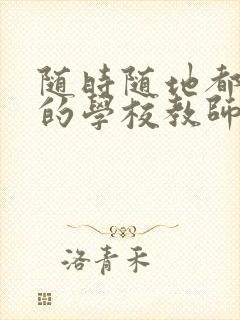 随時随地都
的學校教師
洛青禾